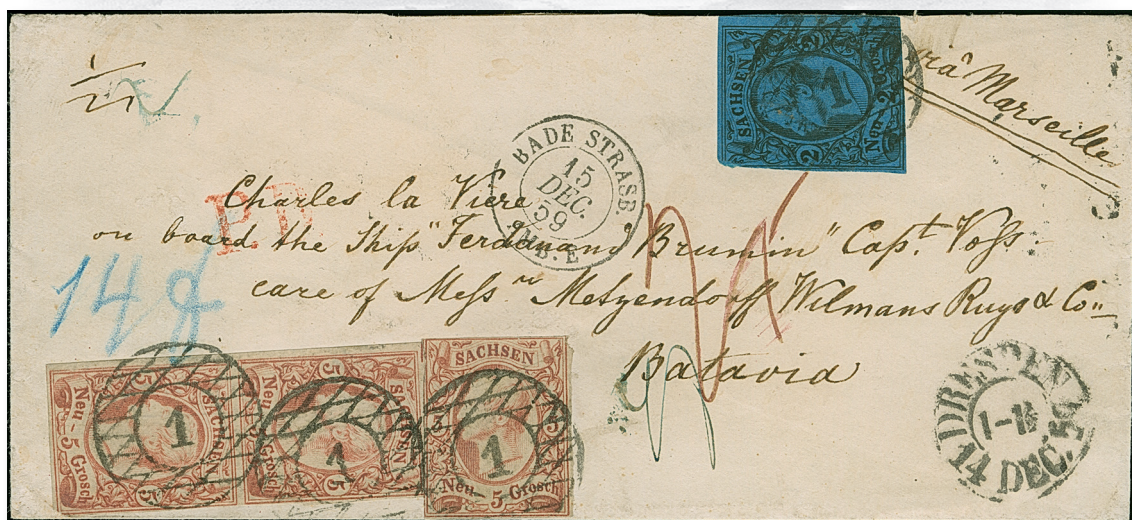 viâ Marseille
SACHSEN
1
2
Neu- 2
BADE STRASB.
15
DEC.
59
AMB. E
P.D.
Charles la Viere
on board the Ship "Ferdinand Brumm" Capt. Voss.
care of Messrs Metzendorff Wilmans Ruys & Co
Batavia
14
SACHSEN
Neu- 5 Grosch
5
1
SACHSEN
Neu- 5 Grosch
5
1
SACHSEN
1
Neu- 5 Grosch
DRESDEN
14 DEC. 59